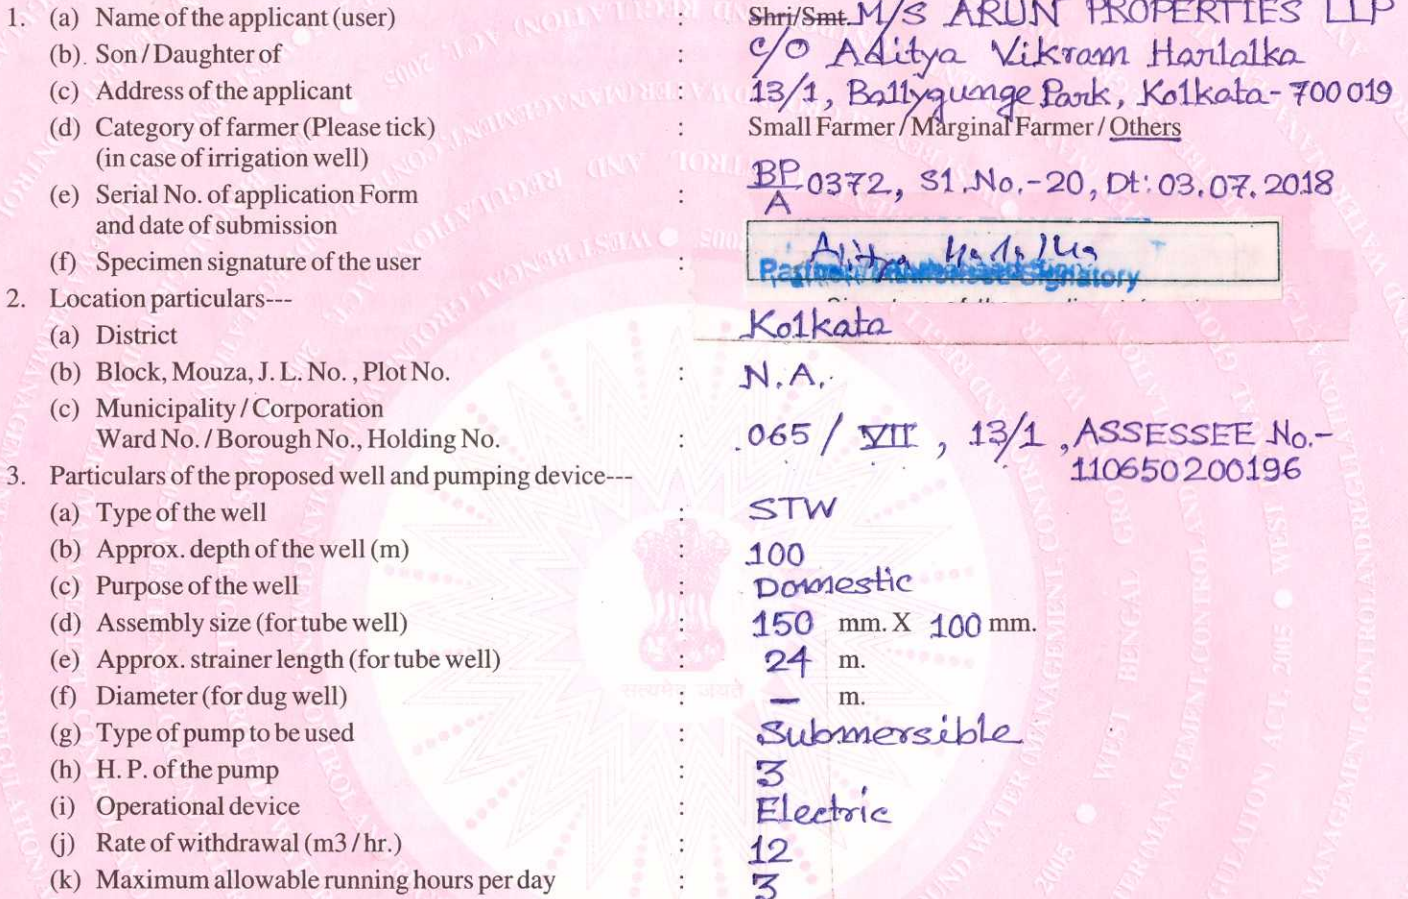 1. (a) Name of the applicant (user) : Shri/Smt. M/S ARUN PROPERTIES LLP
(b). Son / Daughter of : C/O Aditya Vikram Harlalka
(c) Address of the applicant : 13/1, Ballygunge Park, Kolkata-700019
(d) Category of farmer (Please tick) : Small Farmer / Marginal Farmer / Others
(in case of irrigation well)
(e) Serial No. of application Form : BP/A 0372, Sl.No.-20, Dt: 03.07.2018
and date of submission
(f) Specimen signature of the user :
Signatory
2. Location particulars---
(a) District Kolkata
(b) Block, Mouza, J. L. No. , Plot No. : N.A.
(c) Municipality / Corporation
Ward No. / Borough No., Holding No. : 065 / VII , 13/1 , ASSESSEE No.-
110650200196
3. Particulars of the proposed well and pumping device---
(a) Type of the well : STW
(b) Approx. depth of the well (m) : 100
(c) Purpose of the well : Domestic
(d) Assembly size (for tube well) : 150 mm. X 100 mm.
(e) Approx. strainer length (for tube well) : 24 m.
(f) Diameter (for dug well) : — m.
(g) Type of pump to be used : Submersible
(h) H. P. of the pump : 3
(i) Operational device : Electric
(j) Rate of withdrawal (m3 / hr.) : 12
(k) Maximum allowable running hours per day : 3
सत्यमेव जयते